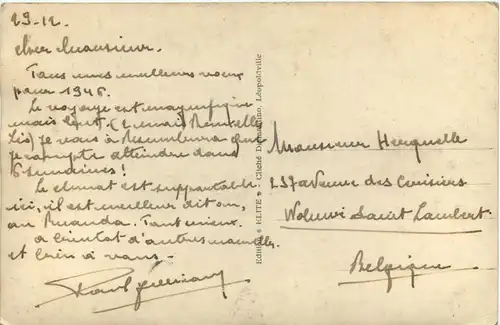 23-12.
cher Monsieur.
Tous mes meilleurs voeux
pour 1946.
Le voyage est magnifique
mais lent. (
je vais à Usumbura que
je compte atteindre dans
6 semaines!
Le climat est supportable
ici, il est meilleur dit on,
au Ruanda. Tant mieux.
à bientôt d'autres nouvelles.
et bien à vous.
Edition « ELITE » Cliché Léopoldville
Monsieur Herquelle
237 avenue des Cerisiers
Woluwé Saint Lambert
Belgique